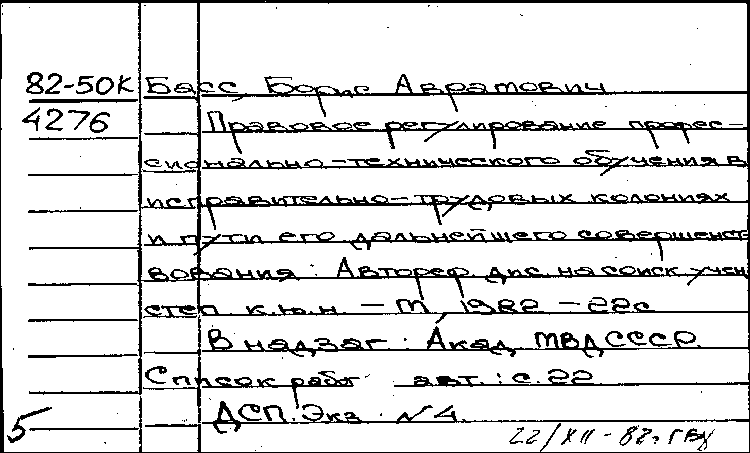 82-50К Басс, Борис Аврамович
4276 Правовое регулирование профес-
сионально-технического обучения в
исправительно-трудовых колониях
и пути его дальнейшего совершенст-
вования: Автореф. дис. на соиск. учен.
степ. к.ю.н. - М, 1982 - 22с
В надзаг.: Акад. МВД СССР.
Список работ авт.: с. 22
ДСП. Экз. №4.
5
22/XII-82г.